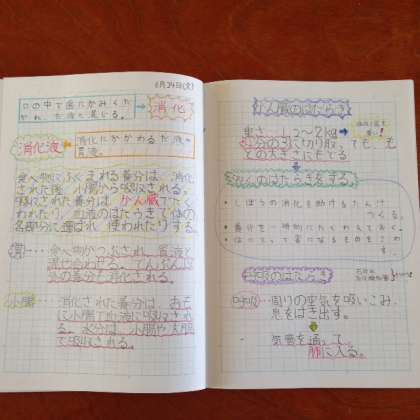 6月24日(火)
口の中で歯にかみくだ
かれ、だ液と混じる。
消化
消化液
消化にかかわるだ液や
胃液。
食べ物にふくまれる養分は、消化
された後、小腸から吸収される。
吸収された養分は、かん臓でたく
わわり、血液のはたらきで体の
各部分に運ばれ、使われたりする。
胃…食べ物がつぶされ、胃液と
混ぜ合わせる。
の養分も消化される。
小腸…消化された養分は、おも
に小腸で血液に吸収され
る。水分は、小腸や大腸
で吸収される。
かん臓のはたらき
重さ 1.5〜2kg
3分の2に切り取っても、も
との大きさにもどる
はたらきをする。
・しぼうの消化を助けるたんじゅうを
つくる。
・養分を一時的にたくわえておく
・体にとって害になるものをこわ
す。
のはたらき
呼吸…周りの空気を吸いこみ、
息をはき出す。
気管を通って、
肺に入る。